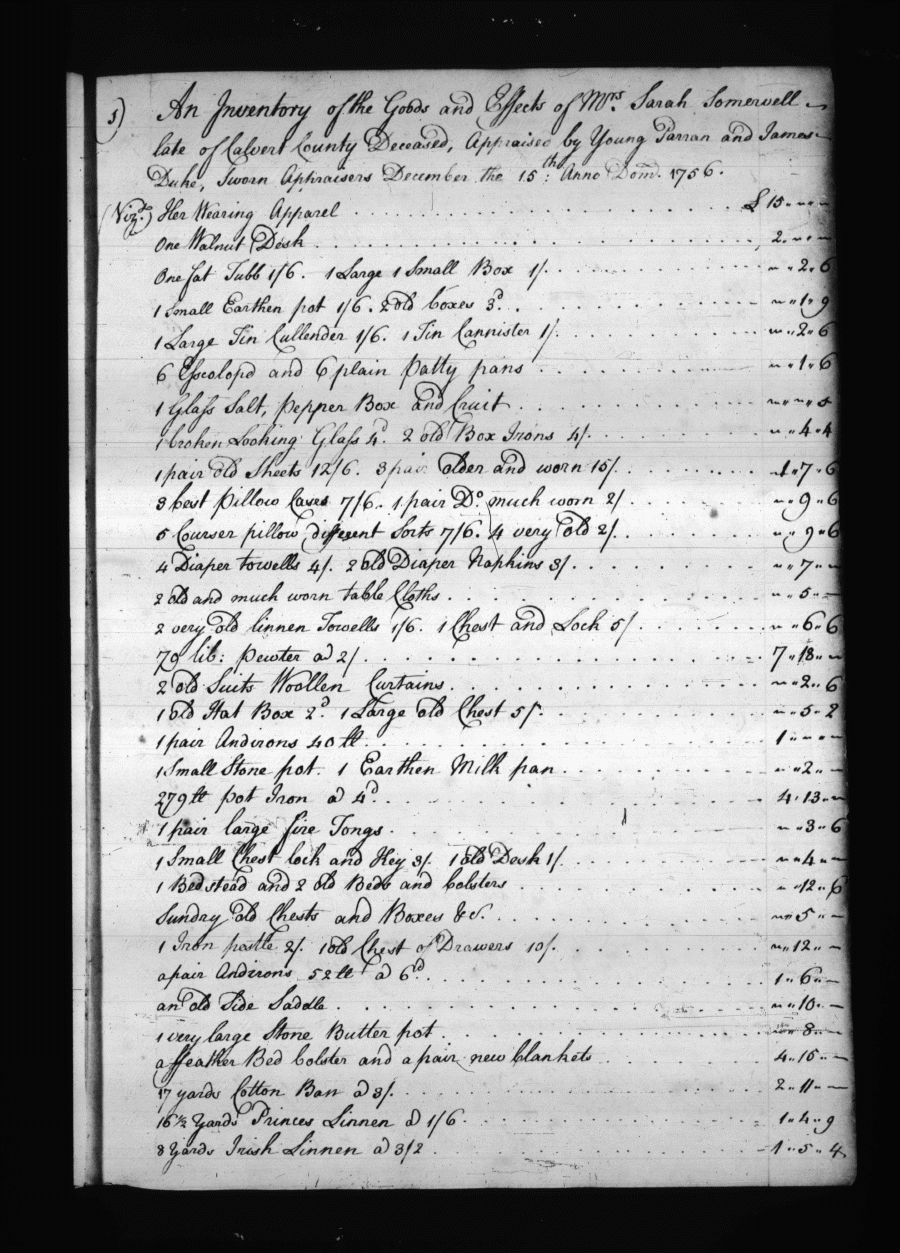 5)
An Inventory of the Goods and Effects of Mrs. Sarah Somervell
late of Calvert County Deceased, Appraised by Young Parran and James
Duke, Sworn Appraisers December the 15th: Anno Dom. 1756.
(Vizt.) Her Wearing Apparel . . . £ 15 " - " -
One Walnut Desk . . . 2 " - " -
One fat Tubb 1/6. 1 Large 1 Small Box 1/. . . . - " 2 " 6
1 Small Earthen pot 1/6. 2 old boxes 3d. . . . - " 1 " 9
1 Large Tin Cullender 1/6. 1 Tin Cannister 1/. . . . - " 2 " 6
6 Escolopd and 6 plain patty pans . . . - " 1 " 6
1 Glass Salt, Pepper Box and Cruit . . . - " - " 8
1 broken Looking Glass 4d. 2 old Box Irons 4/. . . . - " 4 " 4
1 pair old Sheets 12/6. 3 pair older and worn 15/. . . . 1 " 7 " 6
3 best Pillow Cases 7/6. 1 pair Do. much worn 2/ . . . - " 9 " 6
5 Courser pillow different Sorts 7/6. 4 very old 2/. . . . - " 9 " 6
4 Diaper towells 4/. 2 old Diaper Napkins 3/ . . . - " 7 " -
2 old and much worn table Cloths . . . - " 5 " -
2 very old linnen Towells 1/6. 1 Chest and Lock 5/ . . . - " 6 " 6
79 lib: pewter a 2/. . . . 7 " 18 " -
2 old Suits Woollen Curtains . . . - " 2 " 6
1 old Hat Box 2d. 1 Large old Chest 5/. . . . - " 5 " 2
1 pair Andirons 40 lb . . . 1 " - " -
1 Small Stone pot. 1 Earthen Milk pan . . . - " 2 " -
279 lb pot Iron a 4d. . . . 4 " 13 " -
1 pair large fire Tongs . . . - " 3 " 6
1 Small Chest lock and Key 3/. 1 old Desk 1/. . . . - " 4 " -
1 Bedstead and 2 old Beds and bolsters . . . - " 12 " 6
Sundry old Chests and Boxes &c. . . . - " 5 " -
1 Iron pestle 2/. 1 old Chest of Drawers 10/. . . . - " 12 " -
a pair Andirons 52 lb a 6d. . . . 1 " 6 " -
an old Side Saddle . . . - " 10 " -
1 very large Stone Butter pot . . . - " 8 " -
a ffeather Bed bolster and a pair new blankets . . . 4 " 15 " -
17 yards Cotton Barr a 3/. . . . 2 " 11 " -
16 1/2 Yards Princes Linnen a 1/6 . . . 1 " 4 " 9
8 Yards Irish Linnen a 3/2 . . . 1 " 5 " 4